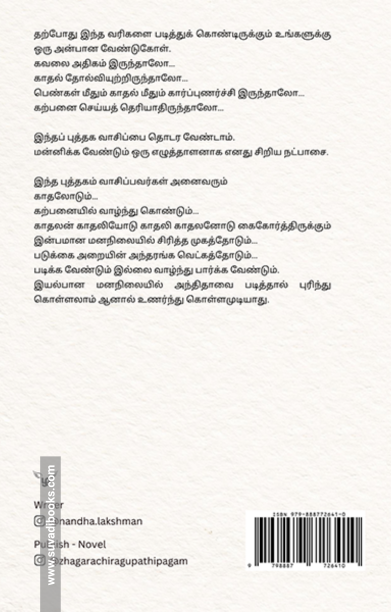 தற்போது இந்த வரிகளை படித்துக் கொண்டிருக்கும் உங்களுக்கு
ஒரு அன்பான வேண்டுகோள்.
கவலை அதிகம் இருந்தாலோ...
காதல் தோல்வியுற்றிருந்தாலோ...
பெண்கள் மீதும் காதல் மீதும் கார்ப்புணர்ச்சி இருந்தாலோ...
கற்பனை செய்யத் தெரியாதிருந்தாலோ...
இந்தப் புத்தக வாசிப்பை தொடர வேண்டாம்.
மன்னிக்க வேண்டும் ஒரு எழுத்தாளனாக எனது சிறிய நட்பாசை.
இந்த புத்தகம் வாசிப்பவர்கள் அனைவரும்
காதலோடும்...
கற்பனையில் வாழ்ந்து கொண்டும்...
காதலன் காதலியோடு காதலி காதலனோடு கைகோர்த்திருக்கும்
இன்பமான மனநிலையில் சிரித்த முகத்தோடும்...
படுக்கை அறையின் அந்தரங்க வெட்கத்தோடும்...
படிக்க வேண்டும் இல்லை வாழ்ந்து பார்க்க வேண்டும்.
இயல்பான மனநிலையில் அந்திதாவை படித்தால் புரிந்து
கொள்ளலாம் ஆனால் உணர்ந்து கொள்ளமுடியாது.
www.suvadibooks.com
Writer
@nandha.lakshman
Publish - Novel
@zhagarachiragupathipagam
ISBN 979-888772641-0
9 798887 726410